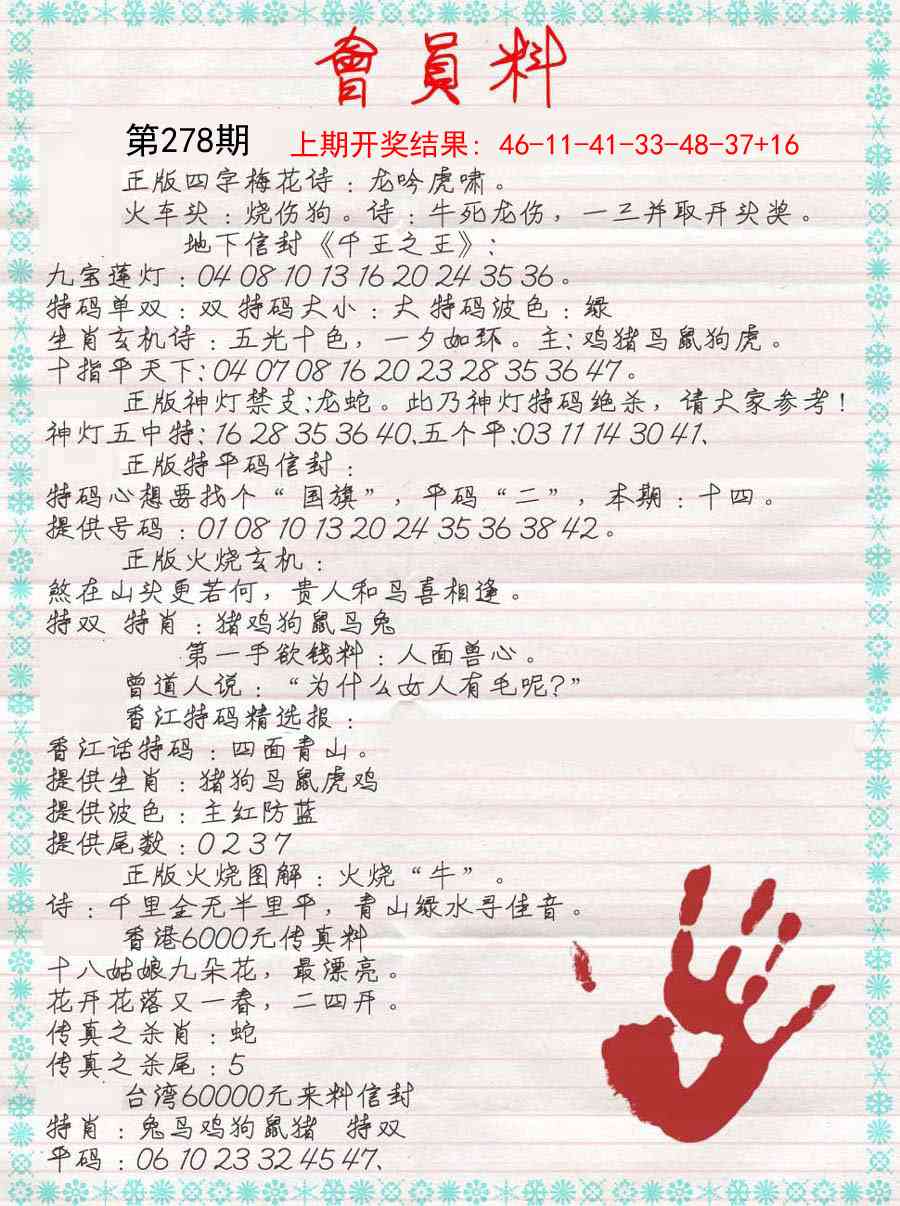 會員料
第278期 上期开奖结果：46-11-41-33-48-37+16
正版四字梅花诗：龙吟虎啸。
火车头：烧伤狗。诗：牛死龙伤，一三并取开头奖。
地下信封《千王之王》：
九宝莲灯：04 08 10 13 16 20 24 35 36。
特码单双：双 特码大小：大 特码波色：绿
生肖玄机诗：五光十色，一夕如环。主：鸡猪马鼠狗虎。
十指平天下：04 07 08 16 20 23 28 35 36 47。
正版神灯禁支：龙蛇。此乃神灯特码绝杀，请大家参考！
神灯五中特：16 28 35 36 40、五个平：03 11 14 30 41、
正版特平码信封：
特码心想要找个“国旗”，平码“二”，本期：十四。
提供号码：01 08 10 13 20 24 35 36 38 42。
正版火烧玄机：
煞在山头更若何，贵人和马喜相逢。
特双 特肖：猪鸡狗鼠马兔
第一手欲钱料：人面兽心。
曾道人说：“为什么女人有毛呢？”
香江特码精选报：
香江话特码：四面青山。
提供生肖：猪狗马鼠虎鸡
提供波色：主红防蓝
提供尾数：0 2 3 7
正版火烧图解：火烧“牛”。
诗：千里金无半里平，青山绿水寻佳音。
香港6000元传真料
十八姑娘九朵花，最漂亮。
花开花落又一春，二四开。
传真之杀肖：蛇
传真之杀尾：5
台湾60000元来料信封
特肖：兔马鸡狗鼠猪 特双
平码：06 10 23 32 45 47、